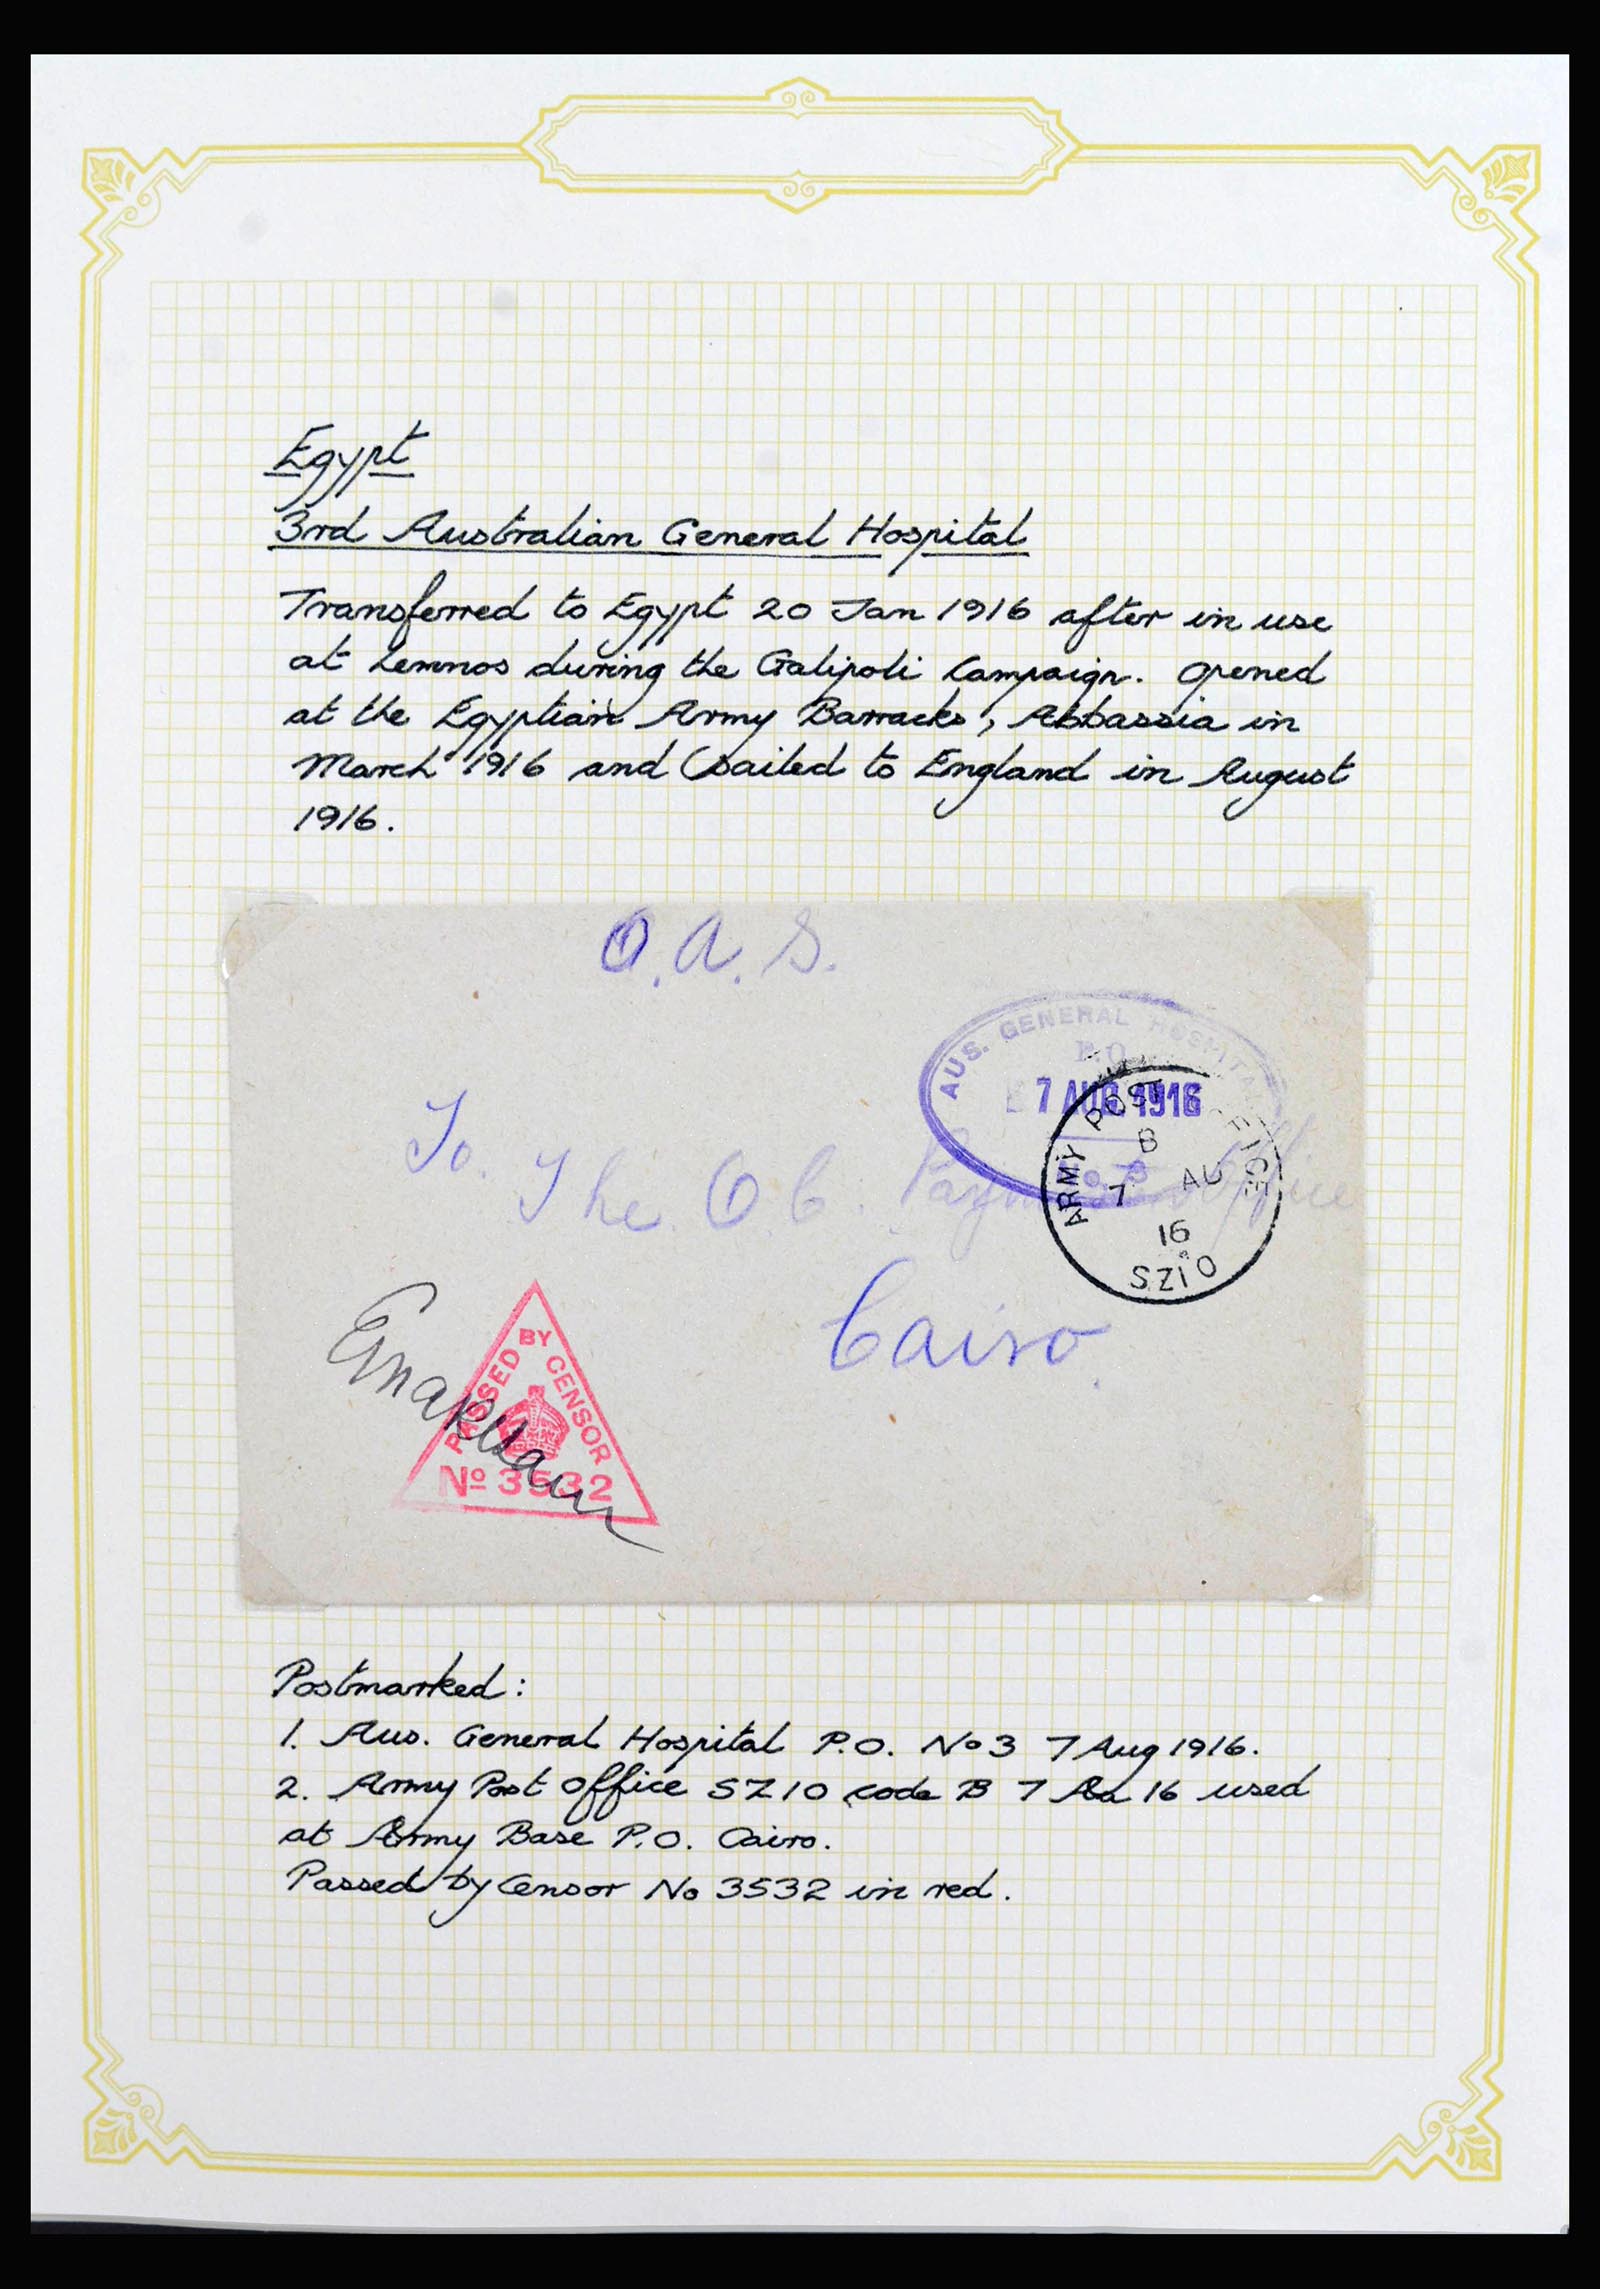 Egypt
3rd Australian General Hospital
Transferred to Egypt 20 Jan 1916 after in use
at Lemnos during the Galipoli Campaign. Opened
at the Egyptian Army Barracks, Abbassia in
March 1916 and sailed to England in August
1916.
O.A.S.
AUS. GENERAL HOSPITAL
P.O.
7 AUG 1916
No. 3
ARMY POST OFFICE
B
7 AU
16
SZ10
To. The O.C. Office
Cairo.
PASSED BY CENSOR
No 3532
Postmarked:
1. Aus. General Hospital P.O. No 3 7 Aug 1916.
2. Army Post Office SZ10 code B 7 Au 16 used
at Army Base P.O. Cairo.
Passed by Censor No 3532 in red.